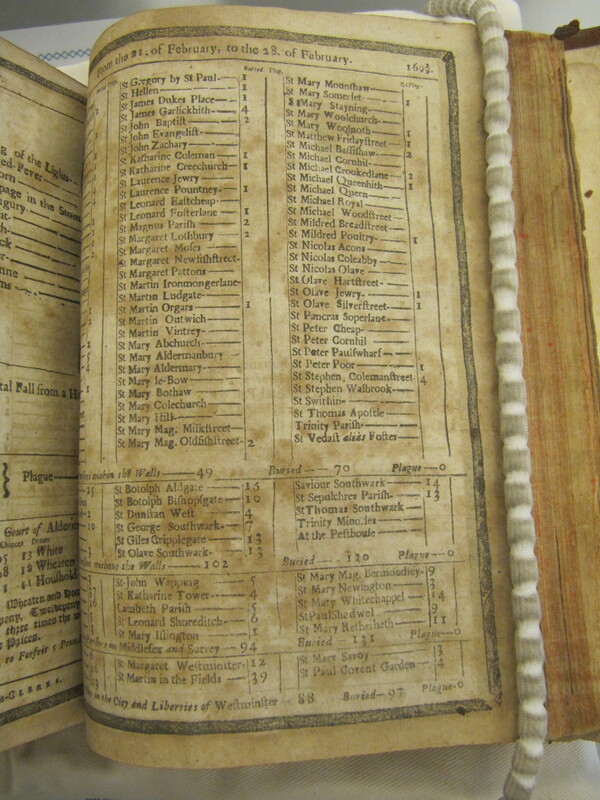 g of the Lights
ed-Fever
orn
page in the Stom
ngury
tal Fall from a Ho
Plague
Court of Alderm
White
Wheaten
Houshold
Wheaten and hous
peny, Twelvepeny
three times the w
Prices.
to Forfeit 5 Pound
-CLERKS.
From the 21. of February, to the 28. of February. 169⅔.
Buried Plag.
St Gregory by St Paul- 1
St Hellen 1
St James Dukes Place 1
St James Garlickhith 4
St John Baptist 2
St John Evangelist
St John Zachary
St Katharine Coleman 1
St Katharine Creechurch 1
St Laurence Jewry
St Laurence Pountney 1
St Leonard Eastcheap
St Leonard Fosterlane 1
St Magnus Parish 2
St Margaret Lothbury 2
St Margaret Moses
St Margaret Newfishstreet
St Margaret Pattons
St Martin Ironmongerlane
St Martin Ludgate
St Martin Orgars 1
St Martin Outwich
St Martin Vintrey
St Mary Abchurch
St Mary Aldermanbury
St Mary Aldermary
St Mary le-Bow
St Mary Bothaw
St Mary Colechurch
St Mary Hill
St Mary Mag. Milkstreet
St Mary Mag. Oldfishstreet 2
St Mary Mounthaw
St Mary Somerset 1
St Mary Stayning
St Mary Woolchurch
St Mary Woolnoth
St Matthew Fridaystreet 1
St Michael Bassishaw 2
St Michael Cornhil
St Michael Crookedlane 2
St Michael Queenhith 1
St Michael Quern
St Michael Royal
St Michael Woodstreet
St Mildred Breadstreet
St Mildred Poultry 1
St Nicolas Acons
St Nicolas Coleabby
St Nicolas Olave
St Olave Hartstreet
St Olave Jewry 1
St Olave Silverstreet 1
St Pancras Soperlane
St Peter Cheap
St Peter Cornhil
St Peter Paulswharf
St Peter Poor 1
St Stephen Colemanstreet 4
St Stephen Walbrook
St Swithin
St Thomas Apostle
Trinity Parish
St Vedast alias Foster
within the Walls 49 Buried 70 Plague 0
St Botolph Aldgate 15
St Botolph Bishopsgate 10
St Dunstan West 4
St George Southwark 7
St Giles Cripplegate 13
St Olave Southwark 13
Saviour Southwark 14
St Sepulchres Parish 13
St Thomas Southwark
Trinity Minories
At the Pesthouse
without the Walls 102 Buried 120 Plague 0
St John Wapping 5
St Katharine Tower 4
Lambeth Parish 5
St Leonard Shoreditch 6
St Mary Islington 1
St Mary Mag. Bermondsey 9
St Mary Newington 3
St Mary Whitechappel 14
St Paul Shadwel 9
St Mary Retherhith 11
Middlesex and Surrey 94 Buried 131 Plague 0
St Margaret Westminster 12
St Martin in the Fields 39
St Mary Savoy 3
St Paul Covent Garden 4
in the City and Liberties of Westminster 88 Buried 97 Plague 0